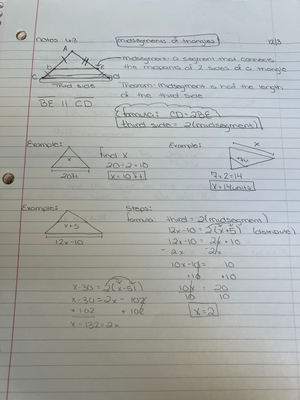 Notes 4.3 midsegments of triangles 12/3
A
B E
C D
third side
midsegment: a segment that connects
the midpoints of 2 sides of a triangle
Theorem: midsegment is half the length
of the third side
BE || CD
formula: CD=2BE
third side = 2(midsegment)
Example:
x
20ft
find x
20÷2=10
x=10ft
Example:
x
7u
7x2=14
x=14units
Example:
x+5
12x-10
Steps:
formula: third = 2(midsegment)
12x-10=2(x+5) (distribute)
12x-10=2x+10
-2x -2x
10x-10= 10
+10 +10
10x = 20
10 10
x=2
x-30=2(x-51)
x-30=2x-102
+102 +102
x-132=2x